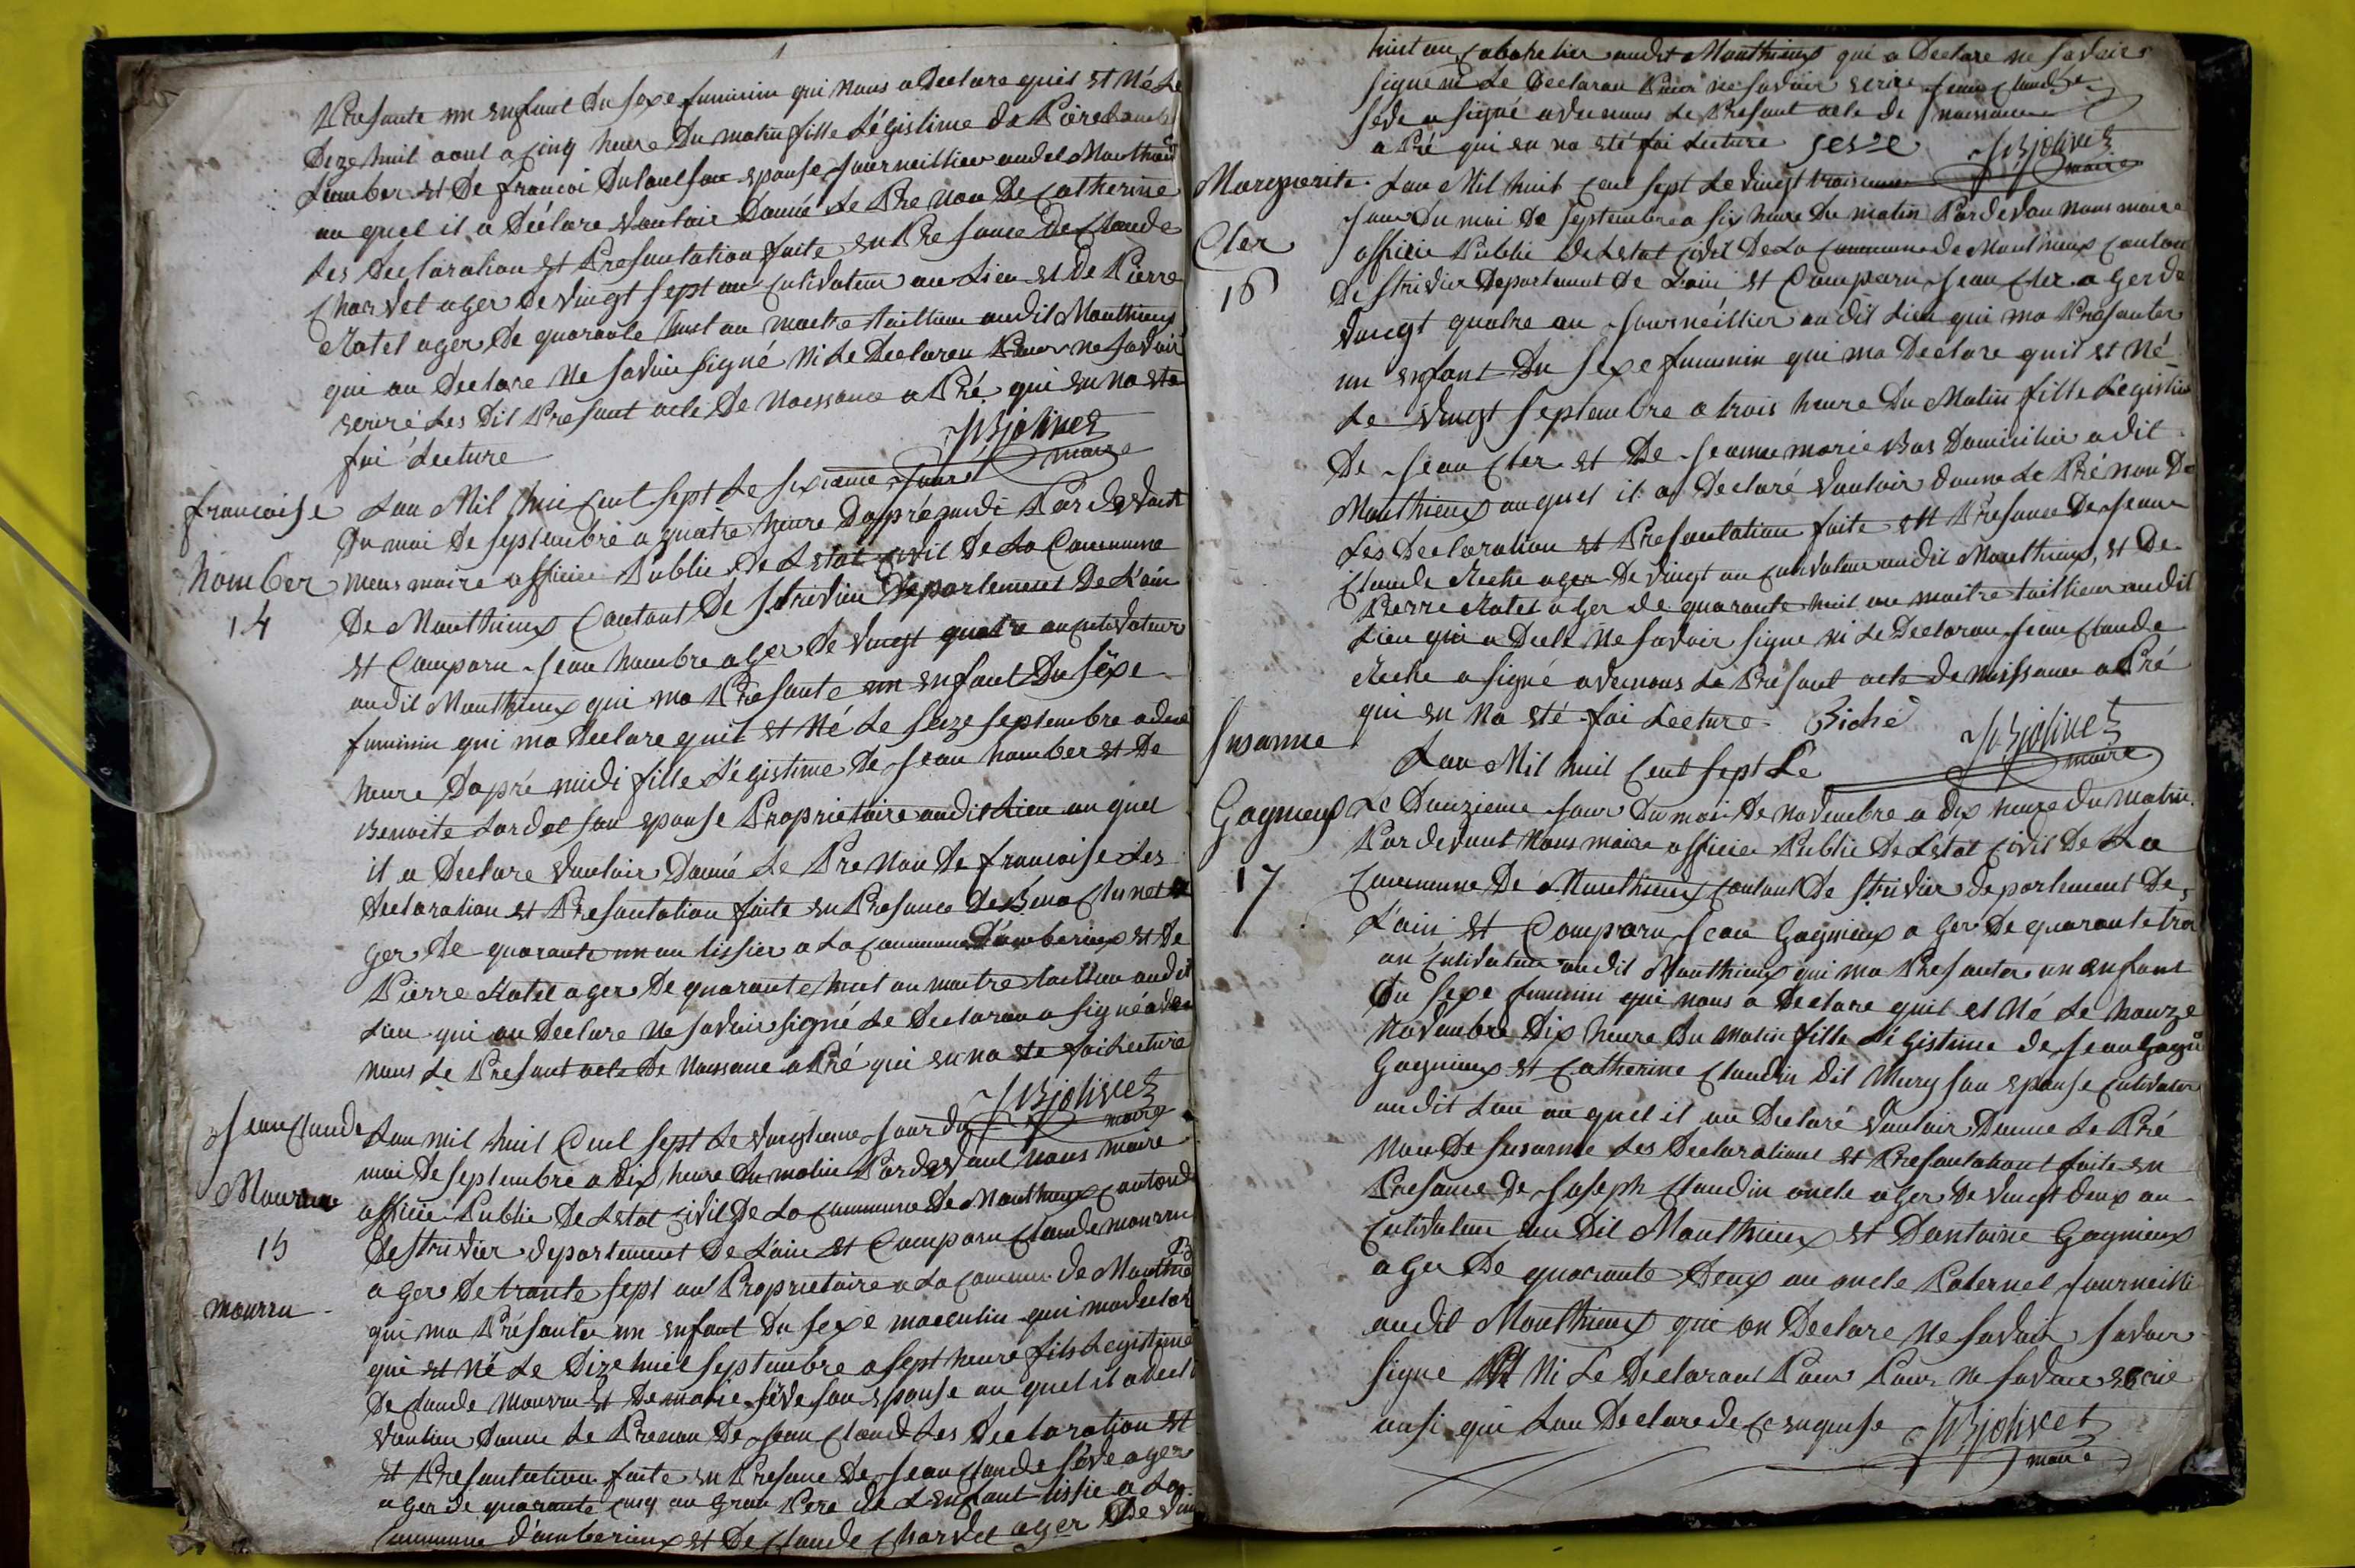 1
Presante un enfant du sexe feminin qui nous a Declare quil est Né Le
Dize huit aout a cinq heure Du matin fille Légistime de Piere
Lhumber et De francoi Dulout son epouse journeillier audit Monthieux
au quel il a Déclare Vouloir Donné Le Pre non De Catherine
Les Declaration et Presantation faite en Presance De Claude
Charvet ager De vingt sept an cultivateur au Lieu et De Pierre
Ratel ager De quarante huit an maitre taillieur audit Monthieux
qui on Declare Ne savoir signé Ni Le Declaran Pour ne savoir
scriré Les Dit Presant acte De naissance a Pré qui en na ete
fai Lecture JBjolivet
maire
francoise Lan Mil hui cent sept Le sexieme Jour
Du moi De septembre a quatre heure Dapré midi Par devant
homber nous maire officier Public De Létat civil De La Commune
14 De Monthieux Cantont De stridier Département De Lain
et Comparu Jean hombre ager De vingt quatre an cultivateur
audit Monthieux qui ma Presante un enfant Du sexe
feminin qui ma Declare quil est Né Le seize septembre a deux
heure Dapré midi fille Légistime De Jean homber et De
Benoite Lardet son epouse Proprietaire audit Lieu au quel
il a Declare vouloir Donné Le Pre non De francoise Les
Declaration et Presantation faite en Presance De Beno Clunet a
ger De quarante un an tissier a La commune Damberieux et De
Pierre Ratel ager De quarante huit an maitre taillieur audit
Lieu qui on Declare Ne savoir signé Le Declaran a signé avec
nous Le Presant acte De Naissance a Pré qui en na ete fai Lecture
JBjolivet
maire
Jean Claude Lan mil huit Cent sept Le vingtieme Jour du
moi De septembre a dix heure du matin Par devant nous maire
Mourru officier Public De Létat civil De La commune De Monthieux cantond
15 De stridier département De Lain et Comparu Claude mourru
ager De trante sept an Proprietaire a La commune de Monthieu
mourru qui ma Présanter un enfant Du sexe masculin qui ma declar
qui est Né Le Dize huit septembre a sept heure fils Legistime
De claude mourru et De marie séve son epouse au quel il a decl
vouloir donne Le Prenon De Jean Claud Les Declaration et
et Presantation faite en Presance De Jean Claude séve ager
ager de quarante cinq an gran Pere de Lenfant tissie a La
commune Damberieux et De Claude Charvet ager De vin
huit an cabaretier audit Monthieux qui a Declare ne savoir
signe ni Le Declaran Pour ne savoir scrire Jean Claude
séve a signé avec nous Le Presant acte de naissance
a Pré qui en na eté fai Lecture seve JBjolivet
maire
Marguerite Lan Mil huit cent sept Le vingt troisieme
Jour Du moi De septembre a six heure Du matin Par devan nous maire
Cler officier Public De Létat civil De La Commune De Monthieux canton
16 De stridier Departement De Lain et Comparu Jean Cler ager de
vingt quatre an journeillier audit Lieu qui ma Présanter
un enfant Du sexe feminin qui ma Déclare quil est Né
Le vingt septembre a trois heure Du Matin fille Legistim
De Jean Cler et De Jeanne marie Bas Domicilier adit
Monthieux auquel il a Declaré vouloir donne Le Pré non De
Les Declaration et Presantation faite en Presance De Jean
Claude Riche ager De vingt an cultivateur audit Monthieux, et De
Pierre Ratel ager de quarante huit an maitre taillieur audit
Lieu qui a Decla Ne savoir signe ni Le Declaran Jean Claude
Riche a signé avec nous Le Présant acte de Naissance a Pré
qui en na eté fai Lecture Riche JBjolivet
maire
Susanne Lan Mil huit Cent sept Le
Gagnieux Le Douzieme Jour Du moi De novembre a dix heure du matin
Par devant Nous maire officier Public De Létat civil De La
17 Commune De Monthieux cantont De stridier departement De
Lain et Comparu Jean Gagnieux ager De quarante troi
an cultivateur audit Monthieux qui ma Presanter un enfant
Du sexe feminin qui nous a Declare quil et Né Le honze
Novembre Dix heure Du matin fille Légistime de Jean Gagni
Gagnieux et Catherine Claudin dit Mury son epouse cultivateur
audit Lieu au quel il on Declaré vouloir Donne Le Pré
Non De Susanne Les Declarationt et Presantationt faite en
Presance De Joseph Claudin oncle ager De vingt deux an
cultivateur au Dit Monthieux et Dantoine Gagnieux
ager De quarante Deux an oncle Paternel journeillie
audit Monthieux qui on Declare Ne savoir savoir
signe Ni Le Declarant Pour Pour ne savoir ecrie
ausi qui Lon Declare de ce enquise JBjolivet
maire